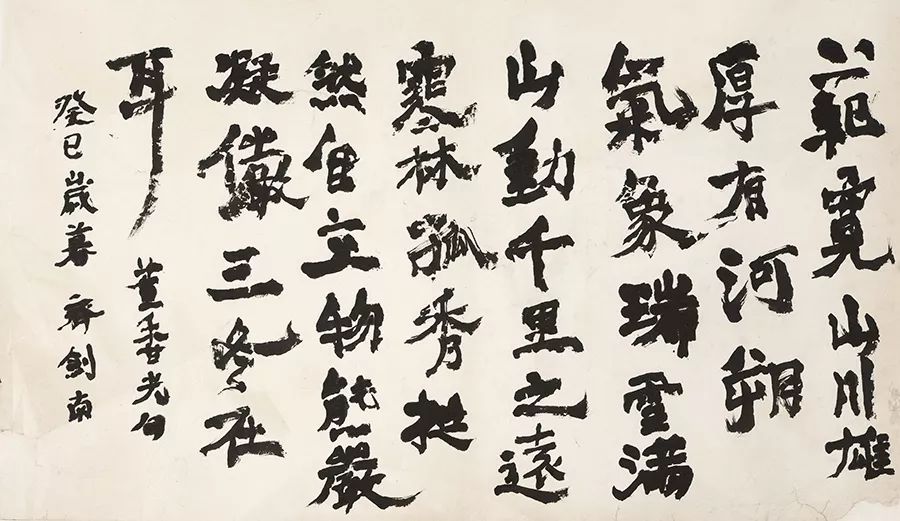 範寬山川雄
厚有河朔
氣象瑞雪滿
山動千里之遠
寒林孤秀挺
然自立物態嚴
凝儼三冬在
耳 董香光句
癸巳歲暮 齊劍南